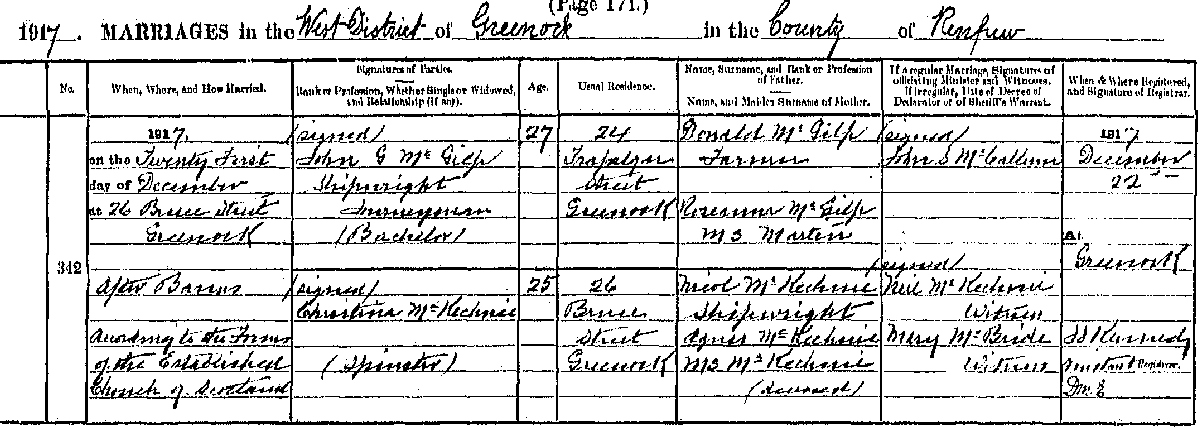 (Page 171.)
1917. MARRIAGES in the West District of Greenock in the County of Renfrew
No.
When, Where, and How Married.
Signatures of Parties.
Rank or Profession, Whether Single or Widowed,
and Relationship (if any).
Age.
Usual Residence.
Name, Surname, and Rank or Profession
of Father.
Name, and Maiden Surname of Mother.
If a regular Marriage, Signatures of
officiating Minister and Witnesses.
If irregular, Date of Decree of
Declarator or of Sheriff's Warrant.
When & Where Registered,
and Signature of Registrar.
342
1917,
on the Twenty First
day of December
at 26 Bruce Street
Greenock
After Banns
According to the Forms
of the Established
Church of Scotland
(signed)
John G McGilp
Shipwright
Journeyman
(Bachelor)
(signed)
Christina McKechnie
(Spinster)
27
25
24
Trafalgar
Street
Greenock
26
Bruce
Street
Greenock
Donald McGilp
Farmer
Roseanna McGilp
MS Martin
Nicol McKechnie
Shipwright
Agnes McKechnie
MS McKechnie
(deceased)
(signed)
John S McCallum
(signed)
Neil McKechnie
Witness
Mary McBride
Witness
1917
December
22nd
At
Greenock
Kennedy
Assistant Registrar.